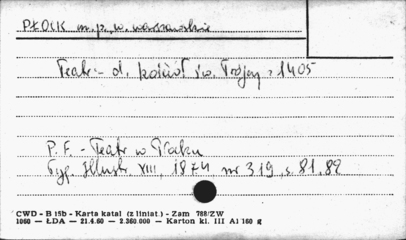 PŁOCK m. p. w. warszawskie
Teatr - d. kościół św. Trójcy z 1405
P. F. - Teatr w Płocku
Tyg. Illustr. XIII, 1874 nr 319, s. 81, 82
CWD - B 15b - Karta katal (z liniat.) - Zam 788/ZW
1060 — ŁDA — 21.4.60 — 2.360.000 — Karton kl. III A1 160 g